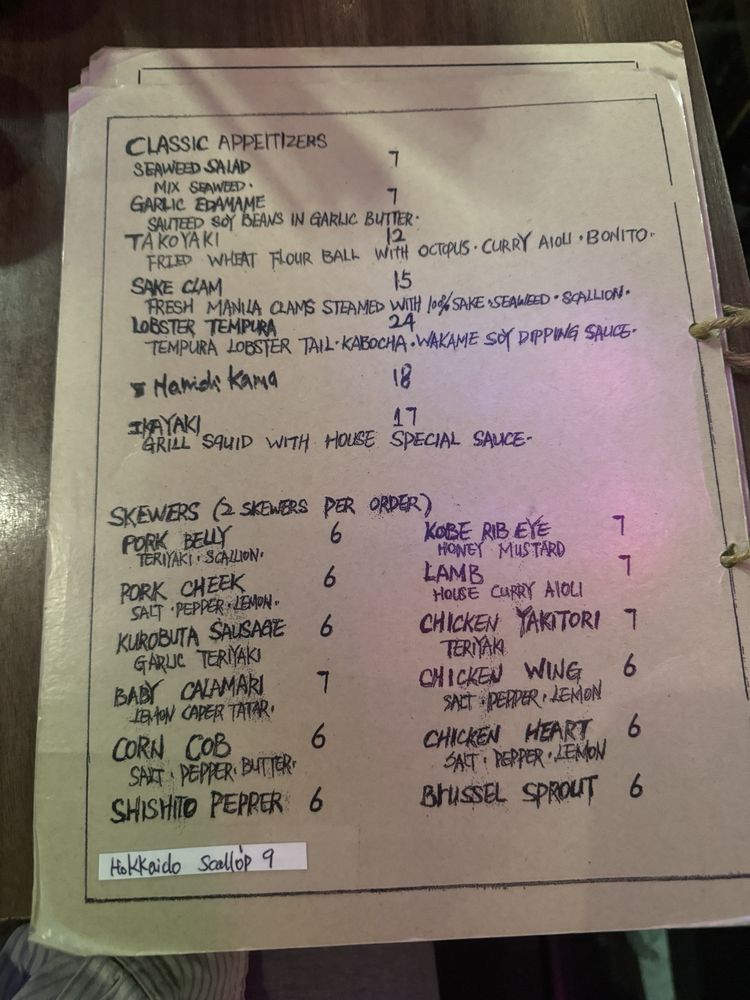 CLASSIC APPEITIZERS
SEAWEED SALAD 7
MIX SEAWEED.
GARLIC EDAMAME 7
SAUTEED SOY BEANS IN GARLIC BUTTER.
TAKOYAKI 12
FRIED WHEAT FLOUR BALL WITH OCTOPUS · CURRY AIOLI · BONITO.
SAKE CLAM 15
FRESH MANILA CLAMS STEAMED WITH 10% SAKE · SEAWEED · SCALLION.
LOBSTER TEMPURA 24
TEMPURA LOBSTER TAIL · KABOCHA · WAKAME SOY DIPPING SAUCE.
Hamichi Kama 18
IKAYAKI 17
GRILL SQUID WITH HOUSE SPECIAL SAUCE.
SKEWERS (2 SKEWERS PER ORDER)
PORK BELLY 6
TERIYAKI · SCALLION.
PORK CHEEK 6
SALT · PEPPER · LEMON.
KUROBUTA SAUSAGE 6
GARLIC TERIYAKI
BABY CALAMARI 7
LEMON CAPER TATAR.
CORN COB 6
SALT · PEPPER · BUTTER.
SHISHITO PEPPER 6
KOBE RIB EYE 7
HONEY MUSTARD
LAMB 7
HOUSE CURRY AIOLI
CHICKEN YAKITORI 7
TERIYAKI
CHICKEN WING 6
SALT · PEPPER · LEMON
CHICKEN HEART 6
SALT · PEPPER · LEMON
BRUSSEL SPROUT 6
Hokkaido Scallop 9